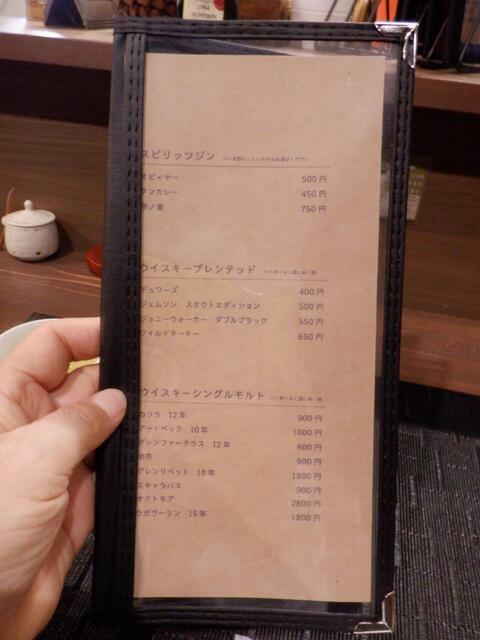 スピリッツジン
オピィヤー 500円
タンカレー 450円
季ノ美 750円
ウイスキーブレンテッド
デュワーズ 400円
ジェムソン スタウトエディション 500円
ジョニーウォーカー ダブルブラック 550円
ワイルドターキー 650円
ウイスキーシングルモルト
カリラ 12年 900円
アードベック 10年 1000円
グレンファークラス 12年 800円
余市 900円
グレンリベット 18年 1800円
スキャラバス 900円
オクトモア 2800円
ラガヴーリン 15年 1800円